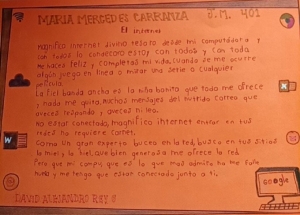 MARIA MERCEDES CARRANZA J.M. 401
El internet
magnifico internet, divino tesoro desde mi computadora y
con todos lo conosco estoy con todos y con todo
me haces feliz y completas mi vida, cuando se me ocurre
algun juego en linea o mirar una serie o cualquier
pelicula.
La fiel banda ancha es la niña bonita que todo me ofrece
y nada me quita, muchos mensajes del nutrido correo que
a veces respondo y aveces ni leo.
no estar conectado, magnifico internet entrar en tus
redes no requiere carnet.
Como un gran experto buceo en la red, busco en tus sitios
la miel y la hiel, que bien generosa me ofrece la red.
Pero que mi compu, que es lo que mas admiro ha me falle
nunca y me tengo que estar conectado junto a ti.
W
X
Google
DAVID ALEJANDRO REY